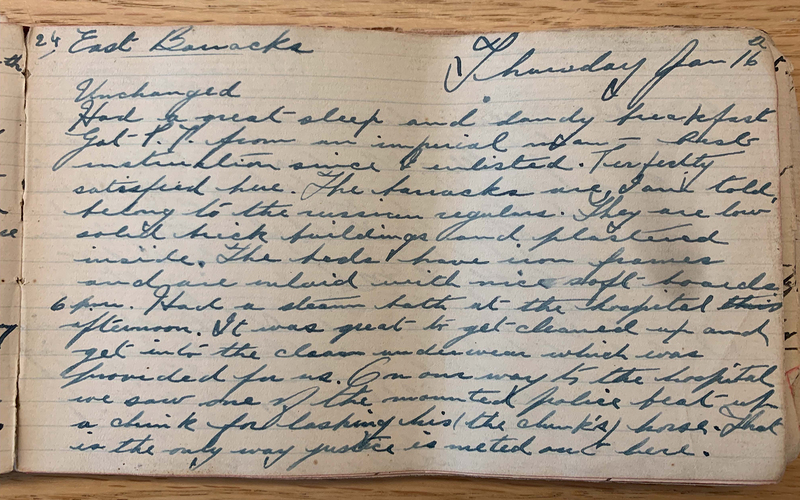 24, East Barracks
Thursday Jan 16th
Unchanged
Had a great sleep and dandy breakfast
Got P.T. from an imperial man – best
instruction since I enlisted. Perfectly
satisfied here. The barracks are, I am told,
belong to the russian regulars. They are low
solid brick buildings and plastered
inside. The beds have iron frames
and are inlaid with nice soft boards.
6 p.m. Had a steam bath at the hospital this
afternoon. It was great to get cleaned up and
get into the clean underwear which was
provided for us. On our way to the hospital
we saw one of the mounted police beat up
a chink for lashing his (the chink's) horse. That
is the only way justice is meted out here.